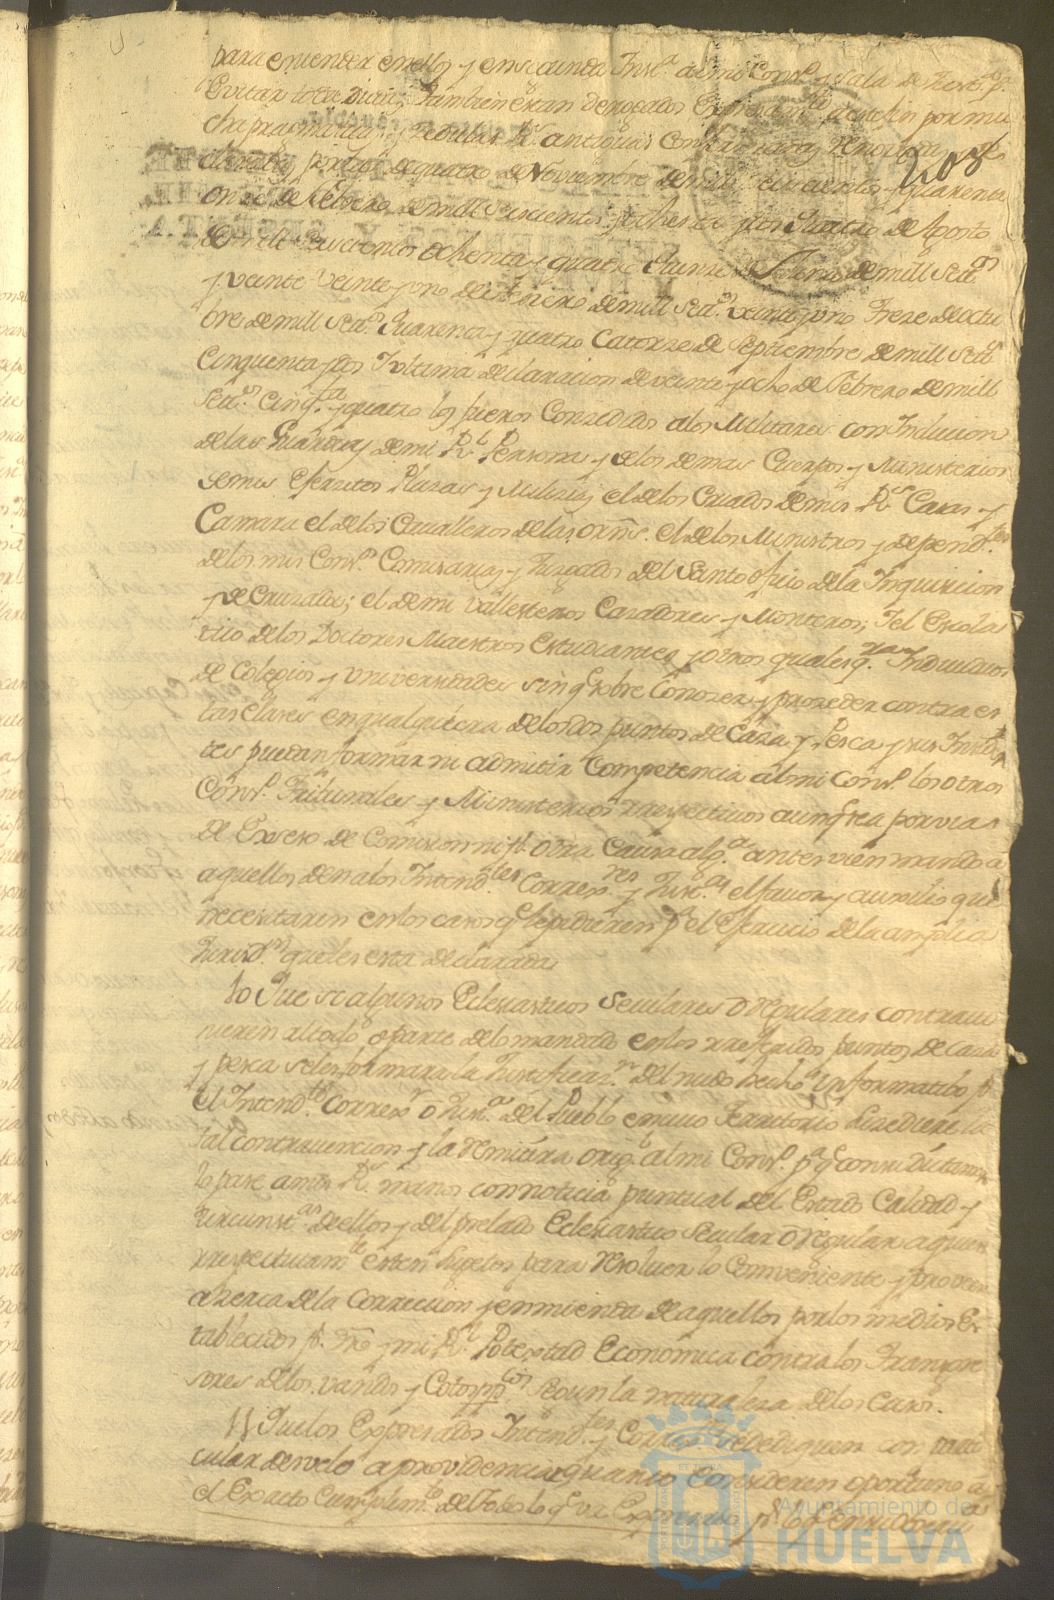 para entender en ello, y en segunda Inst.ª al mi Cons.º y Sala de Just.ª p.ª
evitar toda Duda, tambien eran derogados a este fin por mu
cha pragmatica, y Cedulas R.s antiguas
208
claradas por las de quatro de Noviembre de mill seiscientos y quarenta
onze de Febrero de mill Seiscientos y ochenta y dos Quatro de Agosto
de mill Seiscientos ochenta y quatro Quinze de de mill Set.os
y veinte veinte y uno de Febrero de mill Set.os veinte y uno Treze de octu
bre de mill Set.os Quarenta y quatro Catorze de Septiembre de mill Set.os
Cinquenta y dos Y ultima declaracion de veinte y ocho de Febrero de mill
Set.os Cinq.ta y quatro los fueros Conzedidos a los Militares con Inclucion
de las Guardias de mi R.l Persona y de los demas Cuerpos y Ministerios
de mis Exercitos Plazas y Milizias el de los Criados de mis R.s Casas y
Camara el de los Cavalleros de las ôrñs. el de los Ministros y depend.tes
de los mis Cons.os Comisarias y Juzgados del Santo ofizio de la Inquisicion
y de Cruzada; el de mi Vallesteros Cazadores y Monteros; Y el Escolas
tico de los Doctores Maestros Estudiantes y otros qualesq.ra Individuos
de Colegios y Universidades sin q.e sobre Conozer y prozeder contra es
tas clases en qualquiera de los dos puntos de Caza y Pesca y sus Inciden
tes puedan formar ni admitir Competencia al mi Cons.º los otros
Cons.os Tribunales y Ministerios respectivos aunq.e sea por via
de Exceso de Comision ni p.r otra Causa alg.ª antes vien mando a
aquellos den a los Intend.tes Correx.res y Just.as el favor y auxilio que
necesitaren en los casos q.e le pidieren p.ª el Exercicio de la amplia
Jurisd.on que les esta declarada.
10 Que si algunos Eclesiasticos Seculares o regulares contravi
nieren al todo o parte de lo mandado en los referidos puntos de Caza
y pesca se les formara la Justificaz.on del nudo hecho Informatibo p.r
el Intend.te Correx.r o Just.ª del Pueblo en cuio Territorio Sucediere la
tal contravencion y la remitira orig.l al mi Cons.º p.ª q.e con su Dictamen
lo pase a mis R.s manos con noticia puntual del Estado Calidad y
zircunst.as de ellos y del prelado Eclesiastico Secular o regular a quien
respectivam.te esten Sugetos para resolver lo Conveniente y proveer
azerca de la Correccion y enmienda de aquellos por los medios Es
tablecidos p.r dro y mi R.l Potestad Economica contra los Transgre
sores de los vandos y Cotos pp.cos segun la naturaleza de los Casos.
11 Que los Expresados Intend.tes y Correx.res se dediquen con parti
cular desvelo a providenciar quanto Consideren oportuno a
el Exacto Cumplim.to de todo lo q.e va Expresado
Ayuntamiento de
HUELVA